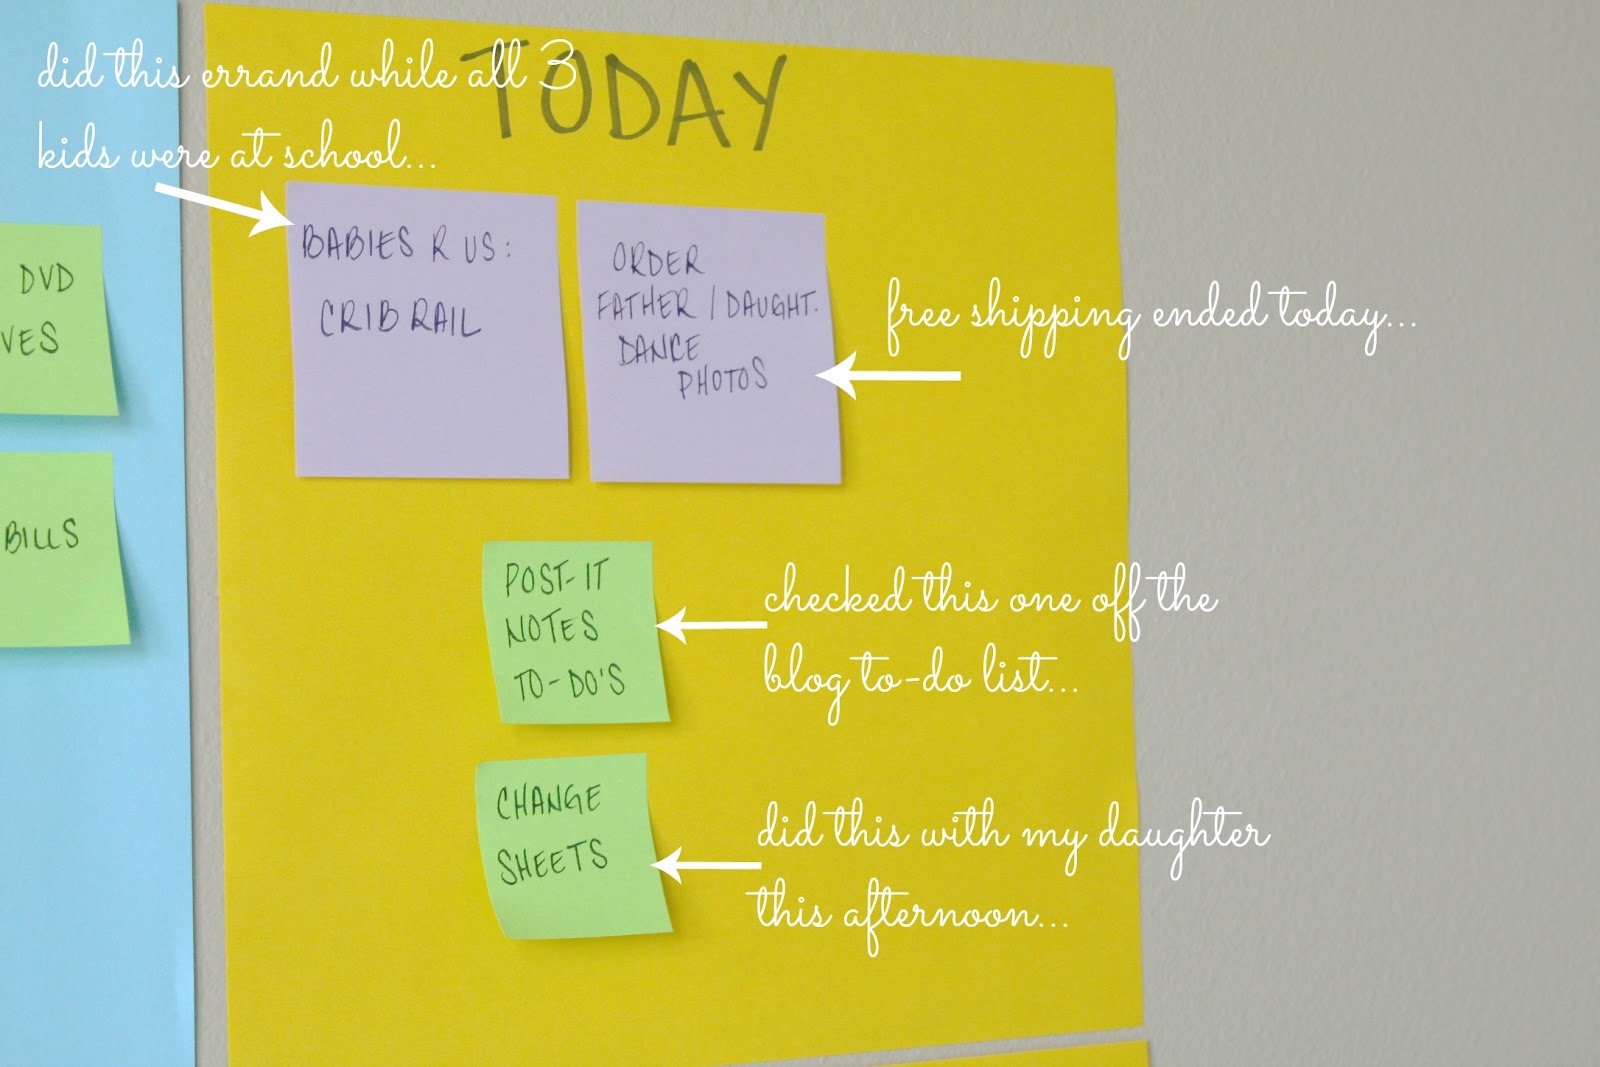 did this errand while all 3
kids were at school...
TODAY
BABIES R US:
CRIB RAIL
ORDER
FATHER / DAUGHT.
DANCE
PHOTOS
free shipping ended today...
DVD
VES
BILLS
POST-IT
NOTES
TO-DO'S
checked this one off the
blog to-do list...
CHANGE
SHEETS
did this with my daughter
this afternoon...